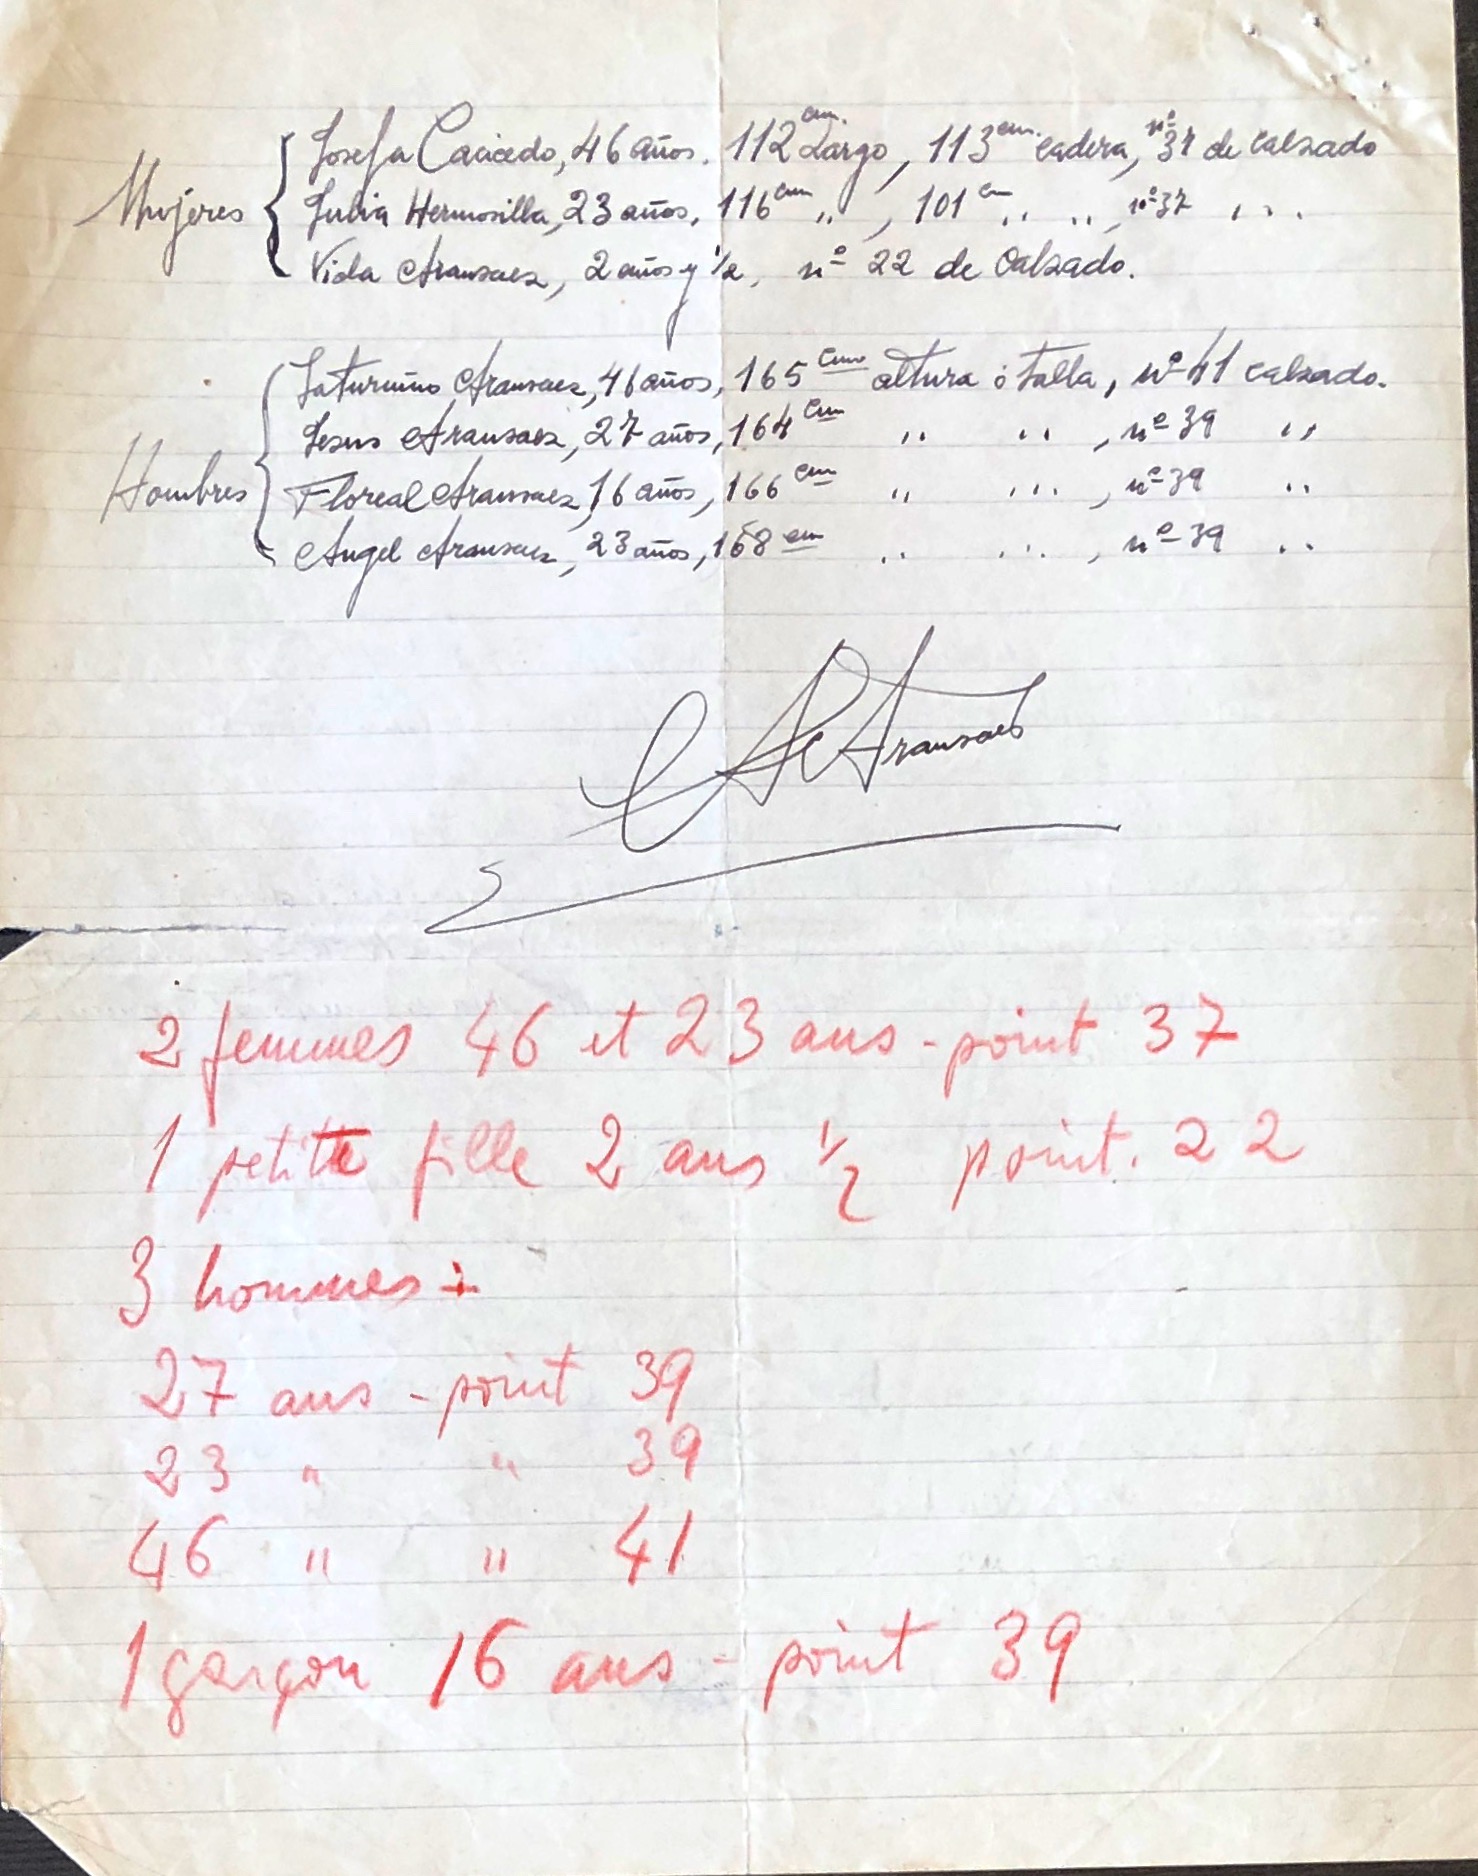 Mujeres
Josefa Caicedo, 46 años. 112 cm. Largo, 113 cm. cadera, nº 37 de calzado
Julia Hermosilla, 23 años, 116 cm „ , 101 cm „ „ , nº 37 „ „
Vida Aransaez, 2 años y 1/2, nº 22 de Calzado.
Hombres
Saturnino Aransaez, 46 años, 165 cm altura ó talla, nº 41 calzado.
Jesus Aransaez, 27 años, 164 cm „ „ , nº 39 „
Floreal Aransaez, 16 años, 166 cm „ „ , nº 39 „
Angel Aransaez, 23 años, 168 cm „ „ , nº 39 „
Aransaez
2 femmes 46 et 23 ans - point 37
1 petite fille 2 ans 1/2 point. 22
3 hommes :
27 ans - point 39
23 " " 39
46 " " 41
1 garçon 16 ans - point 39